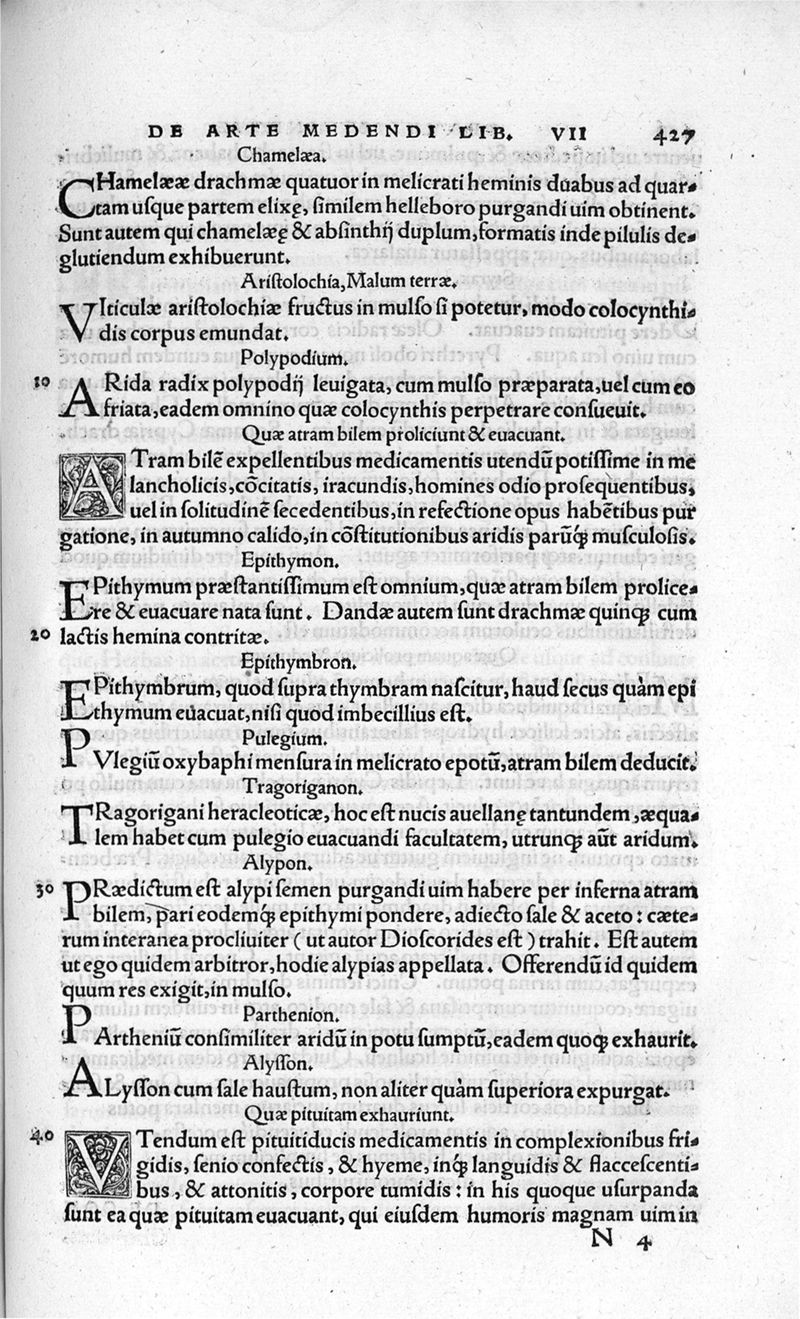 DE ARTE MEDENDI LIB. VII 427
Chamelæa.
CHamelææ drachmæ quatuor in melicrati heminis duabus ad quar-
tam uſque partem elixę, ſimilem helleboro purgandi uim obtinent.
Sunt autem qui chamelæę & abſinthij duplum, formatis inde pilulis de-
glutiendum exhibuerunt.
Ariſtolochia, Malum terræ.
VIticulæ ariſtolochiæ fructus in mulſo ſi potetur, modo colocynthi-
dis corpus emundat.
Polypodium.
10 ARida radix polypodij leuigata, cum mulſo præparata, uel cum eo
friata, eadem omnino quæ colocynthis perpetrare conſueuit.
Quæ atram bilem proliciunt & euacuant.
ATram bilẽ expellentibus medicamentis utendũ potiſſime in me
lancholicis, cõcitatis, iracundis, homines odio proſequentibus,
uel in ſolitudinẽ ſecedentibus, in refectione opus habẽtibus pur
gatione, in autumno calido, in cõſtitutionibus aridis parũq́ꝫ muſculoſis.
Epithymon.
EPithymum præſtantiſſimum eſt omnium, quæ atram bilem prolice-
re & euacuare nata ſunt. Dandæ autem ſunt drachmæ quinqꝫ cum
20 lactis hemina contritæ.
Epithymbron.
EPithymbrum, quod ſupra thymbram naſcitur, haud ſecus quàm epi
thymum euacuat, niſi quod imbecillius eſt.
Pulegium.
PVlegiũ oxybaphi menſura in melicrato epotũ, atram bilem deducit.
Tragoriganon.
TRagorigani heracleoticæ, hoc eſt nucis auellanę tantundem, æqua-
lem habet cum pulegio euacuandi facultatem, utrunqꝫ aũt aridum.
Alypon.
30 PRædictum eſt alypi ſemen purgandi uim habere per inferna atram
bilem, pari eodemq́ꝫ epithymi pondere, adiecto ſale & aceto: cæte-
rum interanea procliuiter (ut autor Dioſcorides eſt) trahit. Eſt autem
ut ego quidem arbitror, hodie alypias appellata. Offerendũ id quidem
quum res exigit, in mulſo.
Parthenion.
PArtheniũ conſimiliter aridũ in potu ſumptũ, eadem quoqꝫ exhaurit.
Alyſſon.
ALyſſon cum ſale hauſtum, non aliter quàm ſuperiora expurgat.
Quæ pituitam exhauriunt.
40 VTendum eſt pituitiducis medicamentis in complexionibus fri-
gidis, ſenio confectis, & hyeme, inq́ꝫ languidis & flacceſcenti-
bus, & attonitis, corpore tumidis: in his quoque uſurpanda
ſunt ea quæ pituitam euacuant, qui eiuſdem humoris magnam uim in
N 4